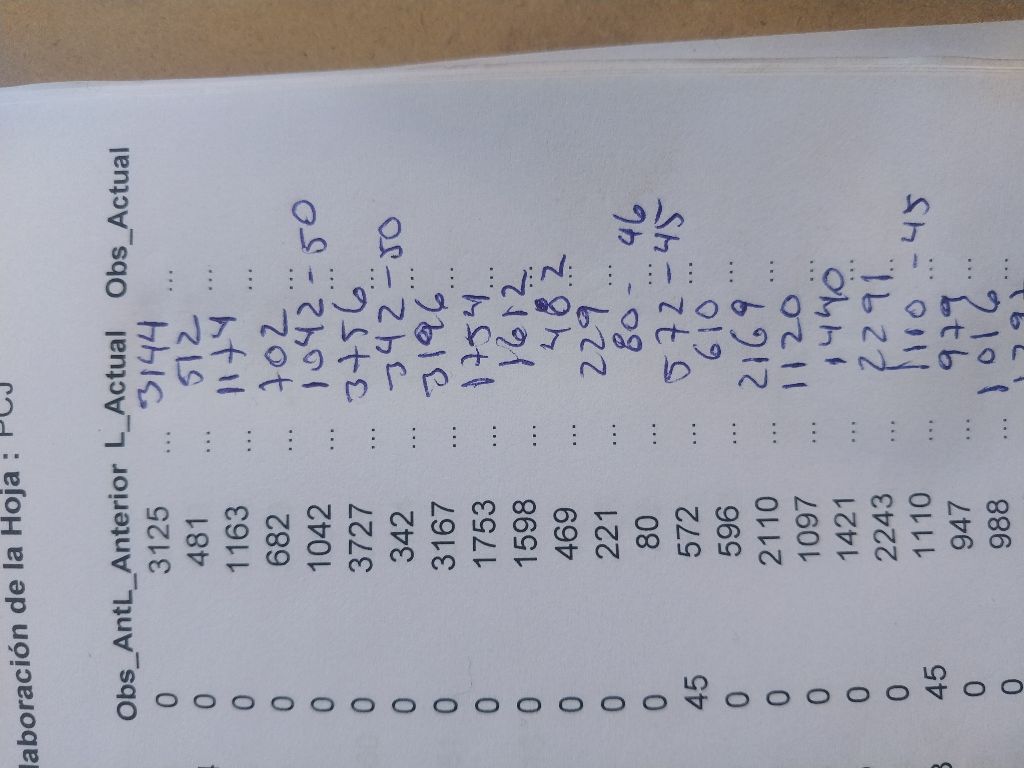 laboración de la Hoja : PCJ
Obs_AntL_Anterior L_Actual Obs_Actual
0 3125 ... 3144 ...
0 481 ... 512 ...
0 1163 ... 1174 ...
0 682 ... 702 ...
0 1042 ... 1042 - 50 ...
0 3727 ... 3756 ...
0 342 ... 342 - 50 ...
0 3167 ... 3196 ...
0 1753 ... 1754 ...
0 1598 ... 1612 ...
0 469 ... 482 ...
0 221 ... 229 ...
0 80 ... 80 - 46 ...
45 572 ... 572 - 45 ...
0 596 ... 610 ...
0 2110 ... 2169 ...
0 1097 ... 1120 ...
0 1421 ... 1440 ...
0 2243 ... 2291 ...
45 1110 ... 1110 - 45 ...
0 947 ... 979 ...
0 988 ... 1016 ...